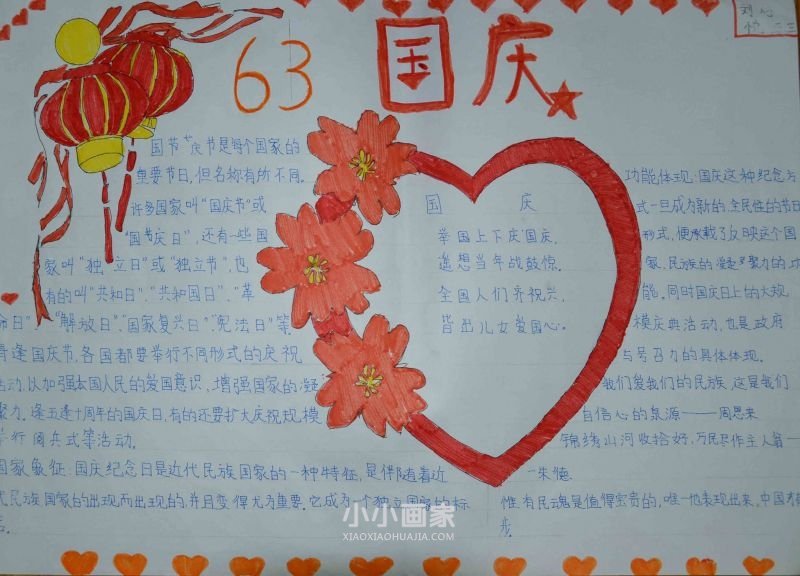 63 国庆
国节庆节是每个国家的
重要节日,但名称有所不同.
许多国家叫"国庆节"或
"国节庆日",还有一些国
家叫"独立日"或"独立节",也
有的叫"共和日"."共和国日"."革
命日"."解放日"."国家复兴日"."宪法日"等
每逢国庆节,各国都要举行不同形式的庆祝
活动,以加强本国人民的爱国意识,增强国家的凝
聚力.逢五逢十周年的国庆日,有的还要扩大庆祝规模
举行阅兵式等活动.
国家象征:国庆纪念日是近代民族国家的一种特征,是伴随着近
代民族国家的出现而出现的,并且变得尤为重要.它成为一个独立国家的标
志.
国庆
举国上下庆国庆,
遥想当年战鼓惊.
全国人们齐祝兴,
皆出儿女爱国心。
功能体现:国庆这种纪念方
式一旦成为新的,全民性的节日
形式,便承载了反映这个国
家、民族的凝聚力的功
能.同时国庆日上的大规
模庆典活动,也是政府
与号召力的具体体现.
我们爱我们的民族,这是我们
自信心的泉源——周恩来
锦绣山河收拾好,万民尽作主人翁—
—朱德.
惟有民魂是值得宝贵的,唯他表现出来,中国才有
步.
小小画家
XIAOXIAOHUAJIA.COM